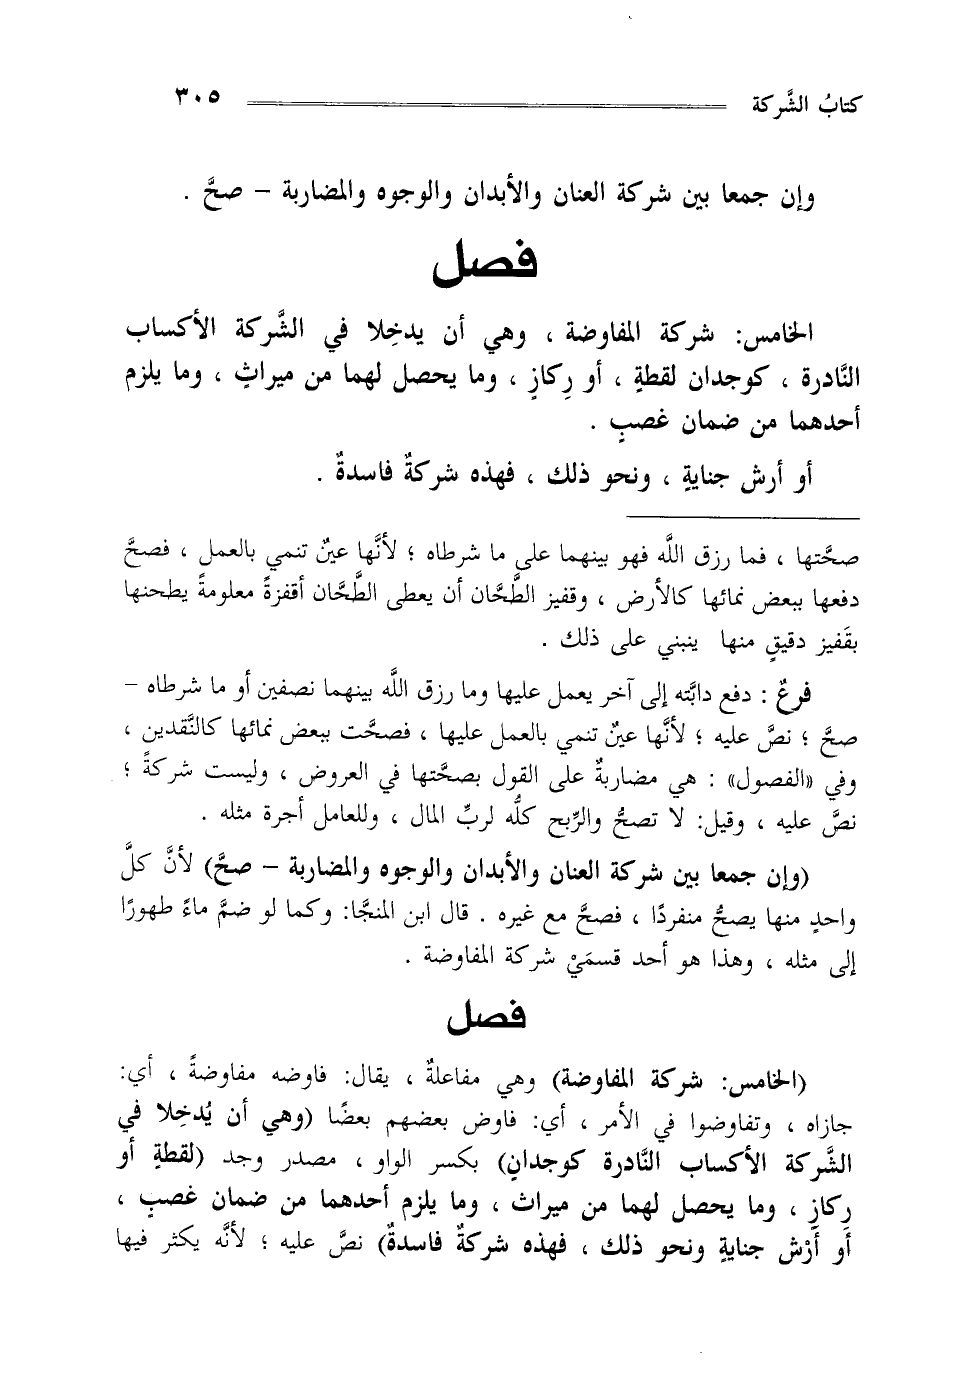 كتابُ الشَّركة ٣٠٥
وإن جمعا بين شركة العنان والأبدان والوجوه والمضاربة – صحَّ .
فصل
الخامس: شركة المفاوضة ، وهي أن يدخِلا في الشَّركة الأكساب
النَّادرة ، كوجدان لقطةٍ ، أو رِكازٍ ، وما يحصل لهما من ميراثٍ ، وما يلزم
أحدهما من ضمان غصبٍ .
أو أرش جنايةٍ ، ونحو ذلك ، فهذه شركةٌ فاسدةٌ .
صحَّتها ، فما رزق اللَّه فهو بينهما على ما شرطاه ؛ لأنَّها عينٌ تنمي بالعمل ، فصحَّ
دفعها ببعض نمائها كالأرض ، وقفيز الطَّحَّان أن يعطى الطَّحَّان أقفزةً معلومةً يطحنها
بقَفيز دقيقٍ منها ينبني على ذلك .
فرعٌ : دفع دابَّته إلى آخر يعمل عليها وما رزق اللَّه بينهما نصفين أو ما شرطاه –
صحَّ ؛ نصَّ عليه ؛ لأنَّها عينٌ تنمي بالعمل عليها ، فصحَّت ببعض نمائها كالنَّقدين ،
وفي «الفصول» : هي مضاربةٌ على القول بصحَّتها في العروض ، وليست شركةً ؛
نصَّ عليه ، وقيل: لا تصحُّ والرِّبح كلُّه لربِّ المال ، وللعامل أجرة مثله .
(وإن جمعا بين شركة العنان والأبدان والوجوه والمضاربة – صحَّ) لأنَّ كلَّ
واحدٍ منها يصحُّ منفردًا ، فصحَّ مع غيره . قال ابن المنجَّا: وكما لو ضمَّ ماءً طهورًا
إلى مثله ، وهذا هو أحد قسمَيْ شركة المفاوضة .
فصل
(الخامس: شركة المفاوضة) وهي مفاعلةٌ ، يقال: فاوضه مفاوضةً ، أي:
جازاه ، وتفاوضوا في الأمر ، أي: فاوض بعضهم بعضًا (وهي أن يُدخِلا في
الشَّركة الأكساب النَّادرة كوجدانِ) بكسر الواو ، مصدر وجد (لقطةٍ أو
رِكازٍ ، وما يحصل لهما من ميراث ، وما يلزم أحدهما من ضمان غصبٍ ،
أو أَرْش جنايةٍ ونحو ذلك ، فهذه شركةٌ فاسدةٌ) نصَّ عليه ؛ لأنَّه يكثر فيها